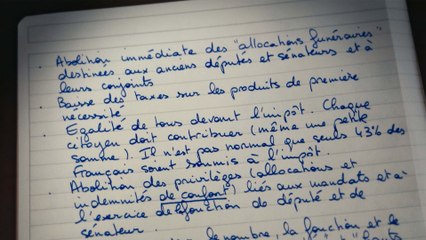 . Abolition immédiate des "allocations funéraires"
destinées aux anciens députés et sénateurs et à
leurs conjoints
. Baisse des taxes sur les produits de première
nécessité
. Egalité de tous devant l'impôt. Chaque
citoyen doit contribuer (même une petite
somme). Il n'est pas normal que seuls 43% des
Français soient soumis à l'impôt.
. Abolition des privilèges (allocations et
indemnités de confort) liés aux mandats et à
l'exercice de fonction de député et de
sénateur.
le nombre, la fonction et le